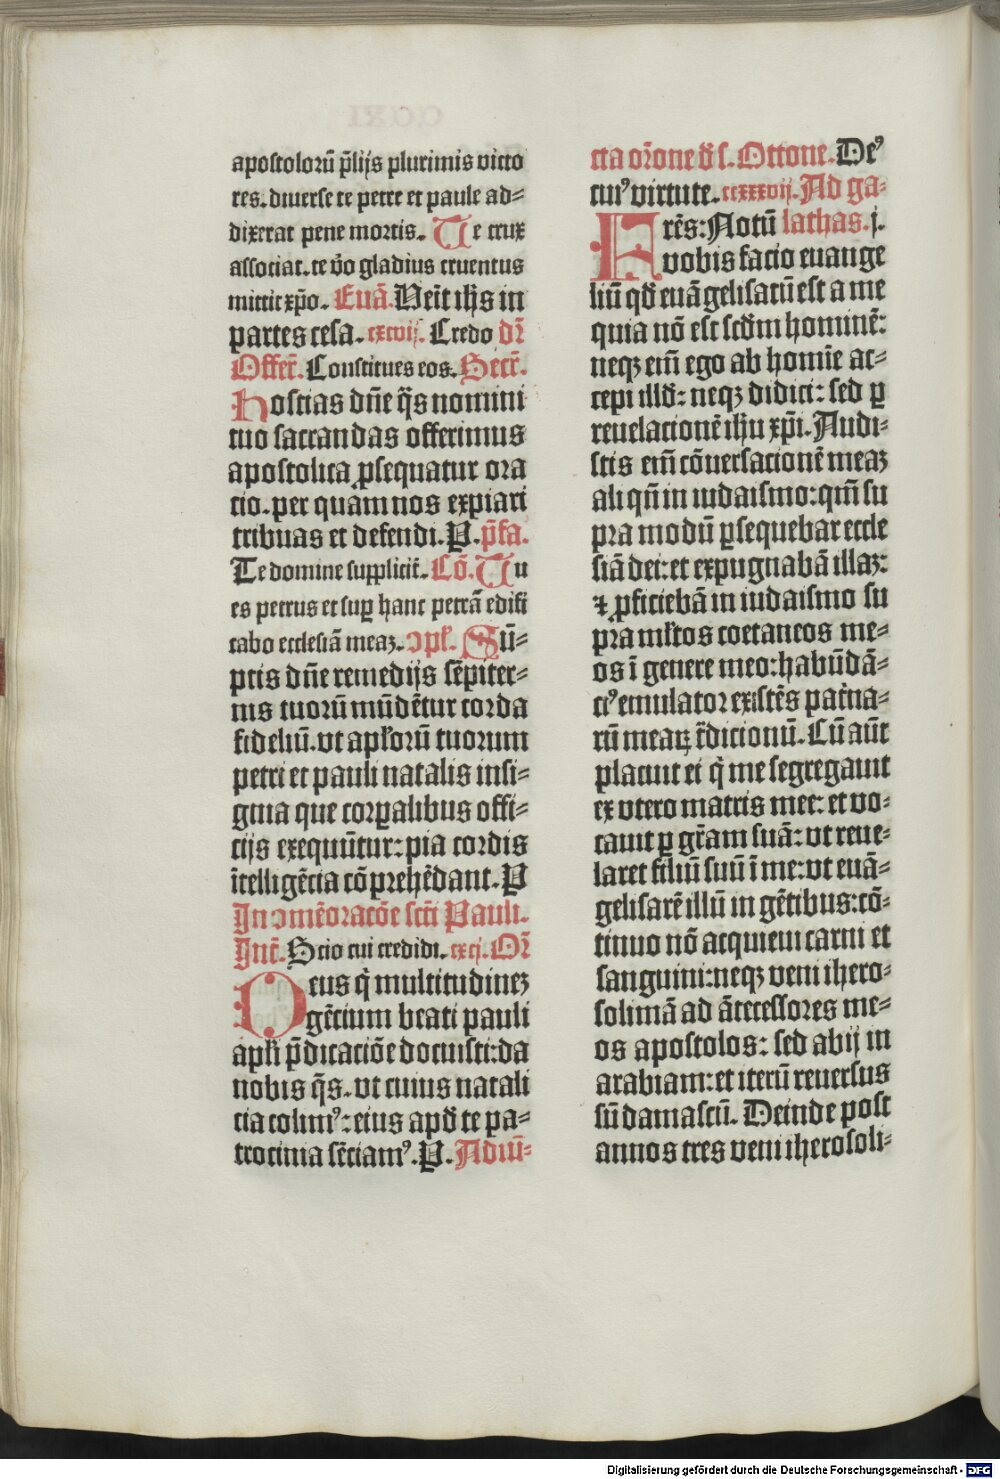 apostolorū p̄lijs plurimis victo
res. diuerse te petre et paule ad⸗
dixerat pene mortis. Te crux
associat. te v̄o gladius cruentus
mittit xp̄o. Euā. Ueīt ih̄s in
partes cesa. cxcvij. Credo dr̄
Offert̄. Constitues eos. Secr̄.
Hostias dn̄e q̄s nomini
tuo sacrandas offerimus
apostolica ꝓsequatur ora
tio. per quam nos expiari
tribuas et defendi. P. p̄fa.
Te domine suppliciť. Cō. Tu
es petrus et suꝑ hanc petrā edifi
cabo ecclesiā meaꝫ. ꝯpl̄. Sū⸗
ptis dn̄e remedijs sēpiter⸗
nis tuorū mūdētur corda
fideliū. vt apl̄orū tuorum
petri et pauli natalis insi⸗
gnia que corꝑalibus offi⸗
cijs exequūtur: pia cordis
ītelligētia cōprehēdant. P
In ꝯmēoracōe sct̄i Pauli.
Int̄. Scio cui credidi. cxcj. Or̄
Deus q̄ multitudineꝫ
gētium beati pauli
apl̄i p̄dicatiōe docuisti: da
nobis q̄s. vt cuius natali
cia colimꝰ: eius apd̄ te pa⸗
trocinia sētiamꝰ. P. Adiū⸗
cta or̄one d̄ s. Ottone. Deꝰ
cuiꝰ virtute. ccxxxvij. Ad ga⸗
Frēs: Notū lathas. j.
vobis facio euange
liū qd̄ euāgelisatū est a me
quia nō est scd̄m hominē:
neqꝫ em̄ ego ab homīe ac⸗
cepi illd̄: neqꝫ didici: sed ꝑ
reuelacionē ih̄u xp̄i. Audi⸗
stis em̄ cōuersacionē meaꝫ
aliqn̄ in iudaismo: qm̄ su
pra modū ꝑsequebar eccle
siā dei: et expugnabā illaꝫ:
⁊ ꝓficiebā in iudaismo su
pra ml̄tos coetaneos me⸗
os ī genere meo: habūdā⸗
tiꝰ emulator existēs pat̄na⸗
rū meaꝝ t̄dicionū. Cū aūt
placuit ei q̄ me segregauit
ex vtero matris mee: et vo⸗
cauit ꝑ gr̄am suā: vt reue⸗
laret filiū suū ī me: vt euā⸗
gelisarē illū in gētibus: cō⸗
tinuo nō acquieui carni et
sanguini: neqꝫ veni ihero⸗
solimā ad ātecessores me⸗
os apostolos: sed abij in
arabiam: et iterū reuersus
sū damascū. Deinde post
annos tres veni iherosoli⸗
Digitalisierung gefördert durch die Deutsche Forschungsgemeinschaft - DFG